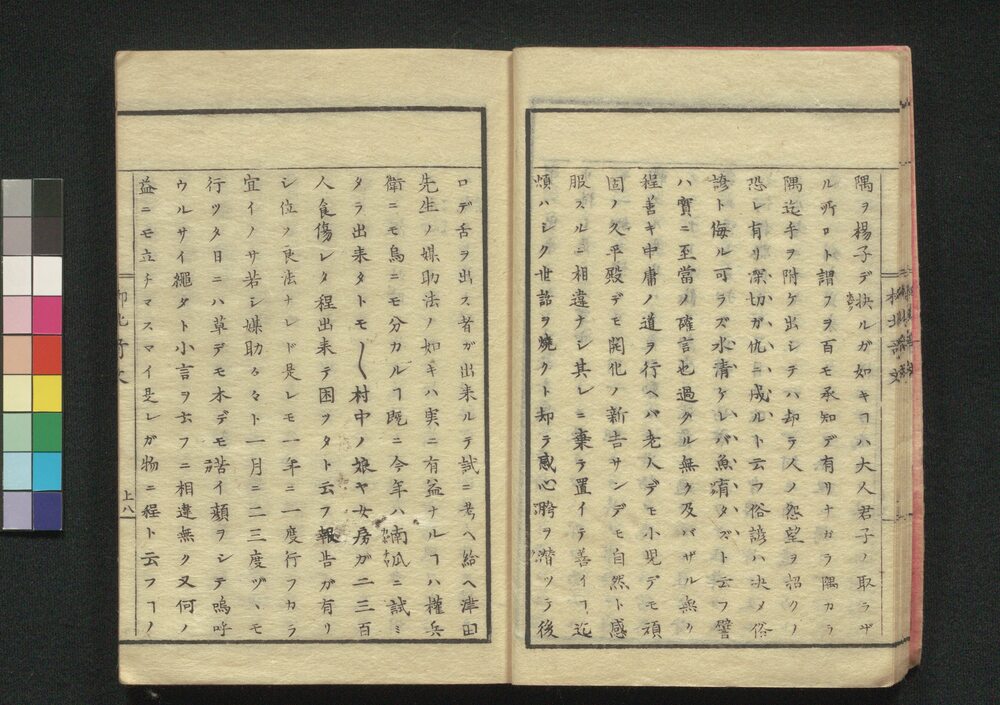 隅ヲ楊子デ抉ルガ如キヿハ大人君子ノ取ラザ
ル所ロト謂フヲ百モ承知デ有リナガラ隅カラ
隅迄手ヲ附ケ出シテハ却ラ人ノ怨望ヲ招クノ
恐レ有リ深切ガ仇ニ成ルト云フ俗諺ハ决メ俗
諺ト侮ル可ラズ水清ケレバ魚棲タズト云フ譬
ハ實ニ至當ノ確言也過グル無ク及バザル無ク
程善キ中庸ノ道ヲ行ヘバ老人デモ小児デモ頑
固ノ久平殿デモ開化ノ新吉サンデモ自然ト感
服スルニ相違ナシ其レニ棄ラ置イテ善イヿ迄
煩ハシク世話ヲ焼クト却ラ感心シ潜ツラ後
ロデ舌ヲ出ス者ガ出来ルテ試ニ考ヘ給ヘ津田
先生ノ媒助法ノ如キハ実ニ有益ナルヿハ權兵
衛ニモ烏ニモ分カルヿ既ニ今年ハ南瓜ニ試ミ
タラ出来タトモ〱村中ノ娘ヤ女房ガ二三百
人食傷レタ程出来テ困ツタト云フ報告ガ有リ
シ位ノ良法ナレド是レモ一年ニ一度行フカラ
宜イノサ若シ媒助々々ト一月ニ二三度ヅヽモ
行ツタ日ニハ草デモ木デモ苦イ顔ヲシテ嗚呼
ウルサイ繩ダト小言ヲ云フニ相違無ク又何ノ
益ニモ立チマスマイ是レガ物ニ程ト云フヿノ
上八